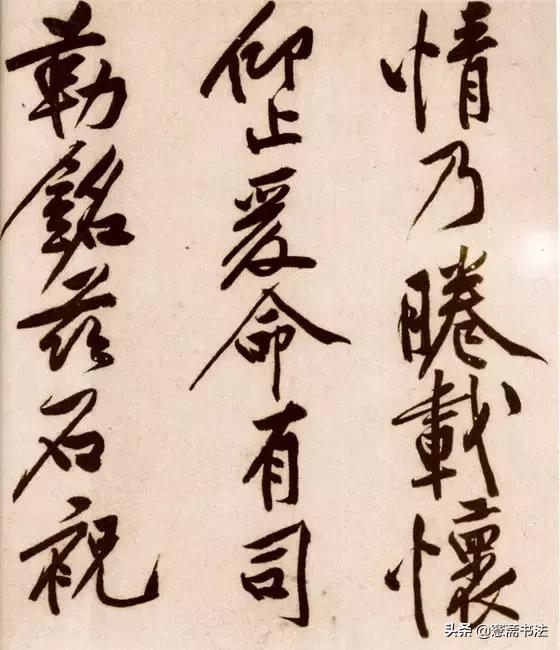 情乃睠載懷
仰止爰命有司
勒銘茲石祝
头条 @愙斋书法